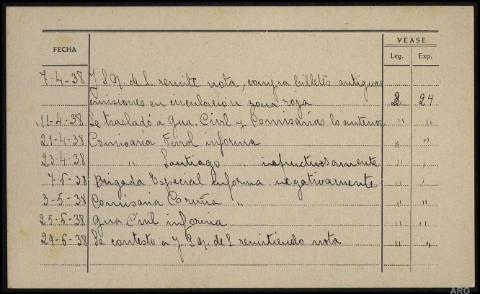 VÉASE
FECHA Leg. Exp.
7-4-38 J. S. y. de S. remite nota, compra billetes antiguas
emisiones en circulación zona roja 2 24
11-4-38 Se traslada a Gua. Civil y Comisaria lo anterior " "
21-4-38 Comisaria Ferrol informa " "
23-4-38 " Santiago " infructuosamente " "
7-5-38 Brigada Especial informa negativamente " "
3-5-38 Comisaria Coruña " " "
25-5-38 Gua Civil informa " "
29-5-38 Se contesta a J. S. y. de S. remitiendo nota " "
ARG